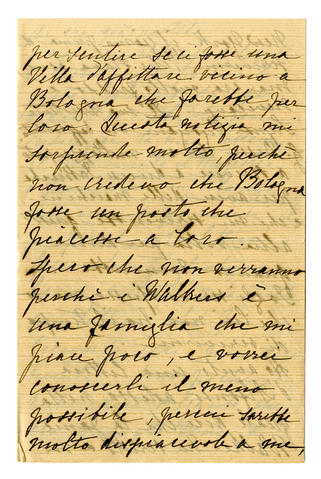 per sentire se ci fosse una
Villa d'affittare vicino a
Bologna che farebbe per
loro. Questa notizia mi
sorprende molto, perchè
non credevo che Bologna
fosse un posto che
piacesse a loro.
Spero che non verranno
perchè i Walkers è
una famiglia che mi
piace poco, e vorrei
conoscerli il meno
possibile, percui sarebbe
molto dispiacevole a me,